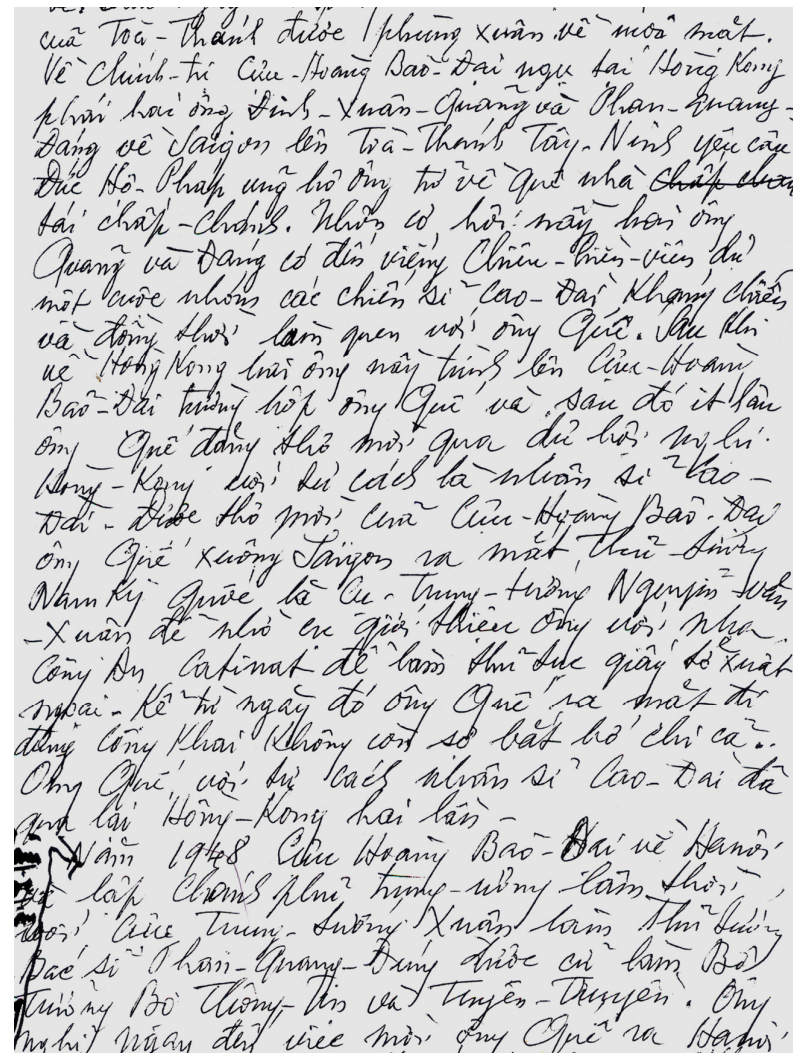 của Toà-Thánh được phùng xuân về moă mắt.
Về Chính-trị Cựu-Hoàng Bảo-Đại ngụ tại Hồng Kong
phái hai ông Đinh-Xuân-Quảng và Phan-quang-
Đáng về Saigon lên Toà-Thánh Tây-Ninh yêu cầu
Đức Hộ-Pháp ủng hộ ông trở về quê nhà
tái chấp-chánh. Nhơn cơ hội nầy hai ông
Quảng và Đáng có đến viếng Chiêu-hiền-viện dự
một cuộc nhóm các chiến sĩ Cao-Đài Kháng chiến
và đồng thời làm quen với ông Quế. Sau khi
về Hồng Kong hai ông nầy trình lên Cựu-Hoàng
Bảo-Đại trường hợp ông Quế và sau đó ít lâu
ông Quế đặng thơ mời qua dự hội nghị
Hồng-Kong với tư cách là nhân sĩ Cao-
Đài - Được thơ mời của Cựu-Hoàng Bảo-Đại
ông Quế xuống Saigon ra mắt Thủ-tướng
Nam Kỳ Quốc là Cựu-Trung-tướng Nguyễn-văn
-Xuân để nhờ cụ giới thiệu ông với nha
Công An Catinat để làm thủ tục giấy tờ xuất
ngoại - Kể từ ngày đó ông Quế ra mặt đi
đứng công khai không còn sợ bắt bớ chi cả..
Ông Quế với tư cách nhân sĩ Cao-Đài đã
qua lại Hồng-Kong hai lần -
Năm 1948 Cựu Hoàng Bảo-Đại về Hanôi
lập Chánh phủ trung-ương lâm thời,
với Cựu Trung-tướng Xuân làm Thủ tướng
Bác sĩ Phan-Quang-Đáng được cử làm Bộ
Trưởng Bộ Thông-Tin và Tuyên-Truyền. Ông
nghĩ ngay đến việc mời ông Quế ra Hanôi